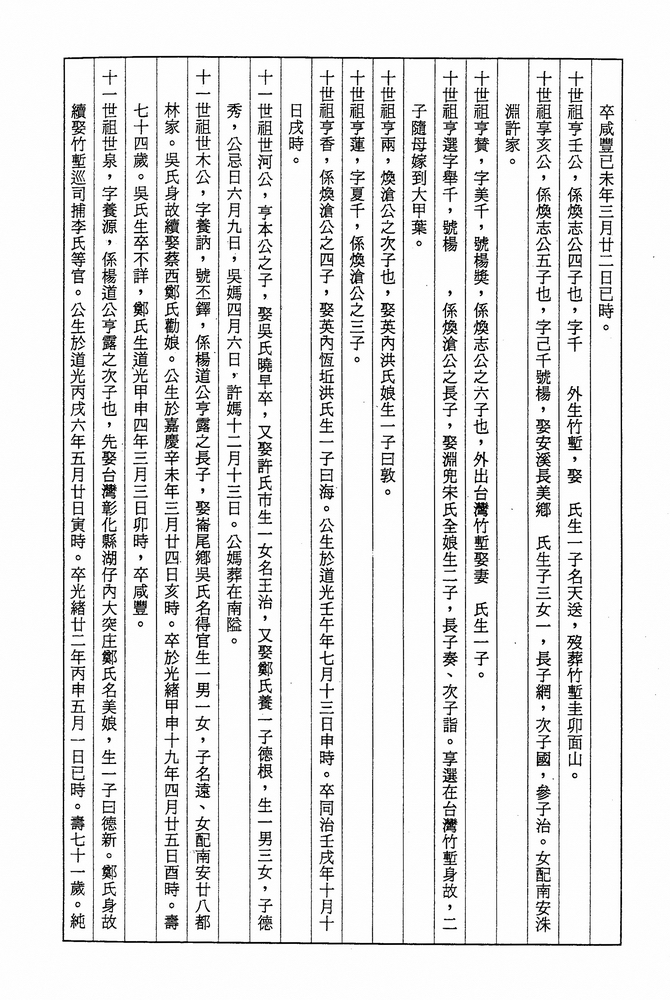 卒咸豐已未年三月廿二日已時。
十世祖亨壬公，係煥志公四子也，字千　　外生竹塹，娶　氏生一子名天送，歿葬竹塹圭卯面山。
十世祖享亥公，係煥志公五子也，字己千號楊，娶安溪長美鄉　氏生子三女一，長子網，次子國，參子治。女配南安洙
淵許家。
十世祖亨贊，字美千，號楊獎，係煥志公之六子也，外出台灣竹塹娶妻　氏生一子。
十世祖亨選字舉千，號楊　　，係煥滄公之長子，娶淵兜宋氏全娘生二子，長子奏、次子詣。享選在台灣竹塹身故，二
子隨母嫁到大甲葉。
十世祖亨兩，煥滄公之次子也，娶英內洪氏娘生一子曰敦。
十世祖亨蓮，字夏千，係煥滄公之三子。
十世祖亨香，係煥滄公之四子，娶英內恆坵洪氏生一子曰海。公生於道光壬午年七月十三日申時。卒同治壬戌年十月十
日戌時。
十一世祖世河公，亨本公之子，娶吳氏曉早卒，又娶許氏市生一女名王治，又娶鄭氏養一子德根，生一男三女，子德
秀，公忌日六月九日，吳媽四月六日，許媽十二月十三日。公媽葬在南隘。
十一世祖世木公，字養訥，號丕鐸，係楊道公亨露之長子，娶崙尾鄉吳氏名得官生一男一女，子名遠、女配南安廿八都
林家。吳氏身故續娶蔡西鄭氏勸娘。公生於嘉慶辛未年三月廿四日亥時。卒於光緒甲申十九年四月廿五日酉時。壽
七十四歲。吳氏生卒不詳，鄭氏生道光甲申四年三月三日卯時，卒咸豐。
十一世祖世泉，字養源，係楊道公亨露之次子也，先娶台灣彰化縣湖仔內大突庄鄭氏名美娘，生一子曰德新。鄭氏身故
續娶竹塹巡司捕李氏等官。公生於道光丙戌六年五月廿日寅時。卒光緒廿二年丙申五月一日已時。壽七十一歲。純